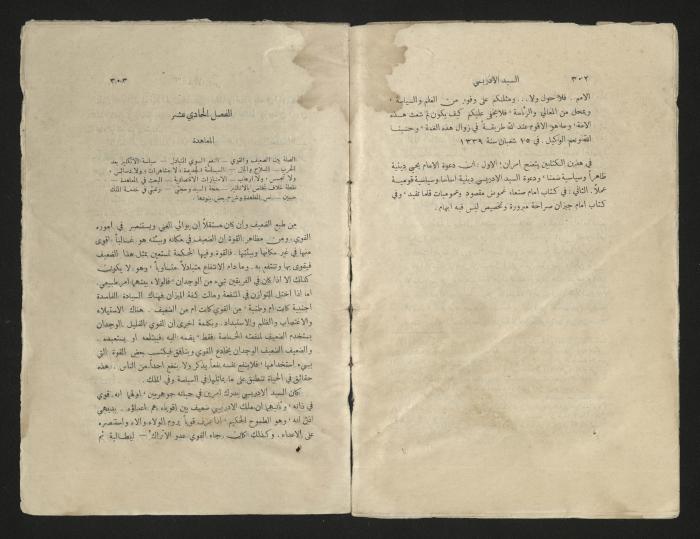 ٣٠٢ السيد الادريسي
الامم . فلا حول ولا... ومثلكم على وفور من العلم والسياسة ،
وبمحل من المعالي والرئاسة ، فلا يخفى عليكم كيف يكون لم شعث هذه
الامة ، وما هو الاقوم عند الله طريقة في زوال هذه الغمة ، وحسبنا
الله ونعم الوكيل . في ٢٥ شعبان سنة ١٣٣٩
في هذين الكتابين يتضح امران : الاول : ان دعوة الامام يحيى دينية
ظاهراً وسياسية ضمناً ، ودعوة السيد الادريسي دينية اساساً وسياسية قومية
عملاً . الثاني : في كتاب امام صنعاء غموض مقصود وعموميات قلما تفيد ، وفي
كتاب امام جيزان صراحة مبرورة وتخصيص ليس فيه ابهام .
٣٠٣
الفصل الحادي عشر
المعاهدة
الصلة بين الضعيف والقوي — النفع السوي المتبادل — سياسة الانكليز بعد
الحرب — السلاح والمال — السياسة الجديدة : لا مشاهرات ، ولا دسائس ،
ولا تجسس ، ولا ارهاب — الامتيازات الاقتصادية — البحث في المعاهدة —
نقطة خلاف تختص بالالمانيين — حجة السيد وحجتي — رغبتي في خدمة الملك
حسين — نص المعاهدة وشرح بعض بنودها .
من طبع الضعيف وان كان مستقلاً ان يوالي الغني ويستنصر في اموره
القوي . ومن مظاهر القوة ان الضعيف في مكانه وبيئته هو غالباً اقوى
منها في غير مكانها وبيئتها . فالقوة وفيها الحكمة تستعين بمثل هذا الضعيف
فيقوى بها وتنتفع به . وما دام الانتفاع متبادلاً متساوياً ، وهو لا يكون
كذلك الا اذا كان في الفريقين شيء من الوجدان ، فالولاء بينهما امر طبيعي.
اما اذا اختل التوازن في المنفعة ومالت كفة الميزان فهناك السيادة الفاسدة
اجنبية كانت ام وطنية ، من القوي كانت ام من الضعيف . هناك الاستيلاء
والاغتصاب والظلم والاستبداد . وبكلمة اخرى ان القوي القليل الوجدان
يستخدم الضعيف لمنفعته الخاصة فقط ، يضمه اليه فيبتلعه او يستعبده .
والضعيف الضعيف الوجدان يخادع القوي وينافق فيكتسب بعض القوة التي
يسيء استخدامها ، فلا ينفع نفسه نفعاً يذكر ولا ينفع احداً من الناس . هذه
حقائق في الحياة تنطبق على ما يماثلها في السياسة وفي الملك .
كان السيد الادريسي يدرك امرين في حياته جوهريين ، اولهما انه قوي
في ذاته ، وثانيهما ان ملك الادريسي ضعيف بين اقوياء هم اعداؤه . بديهي
اذن انه ، وهو الطموح الحكيم ، اذا عرف قوياً يروم الولاء والاه واستنصره
على الاعداء . وكذلك كان . رجاء القوي عدو الاتراك — ايطالية ثم